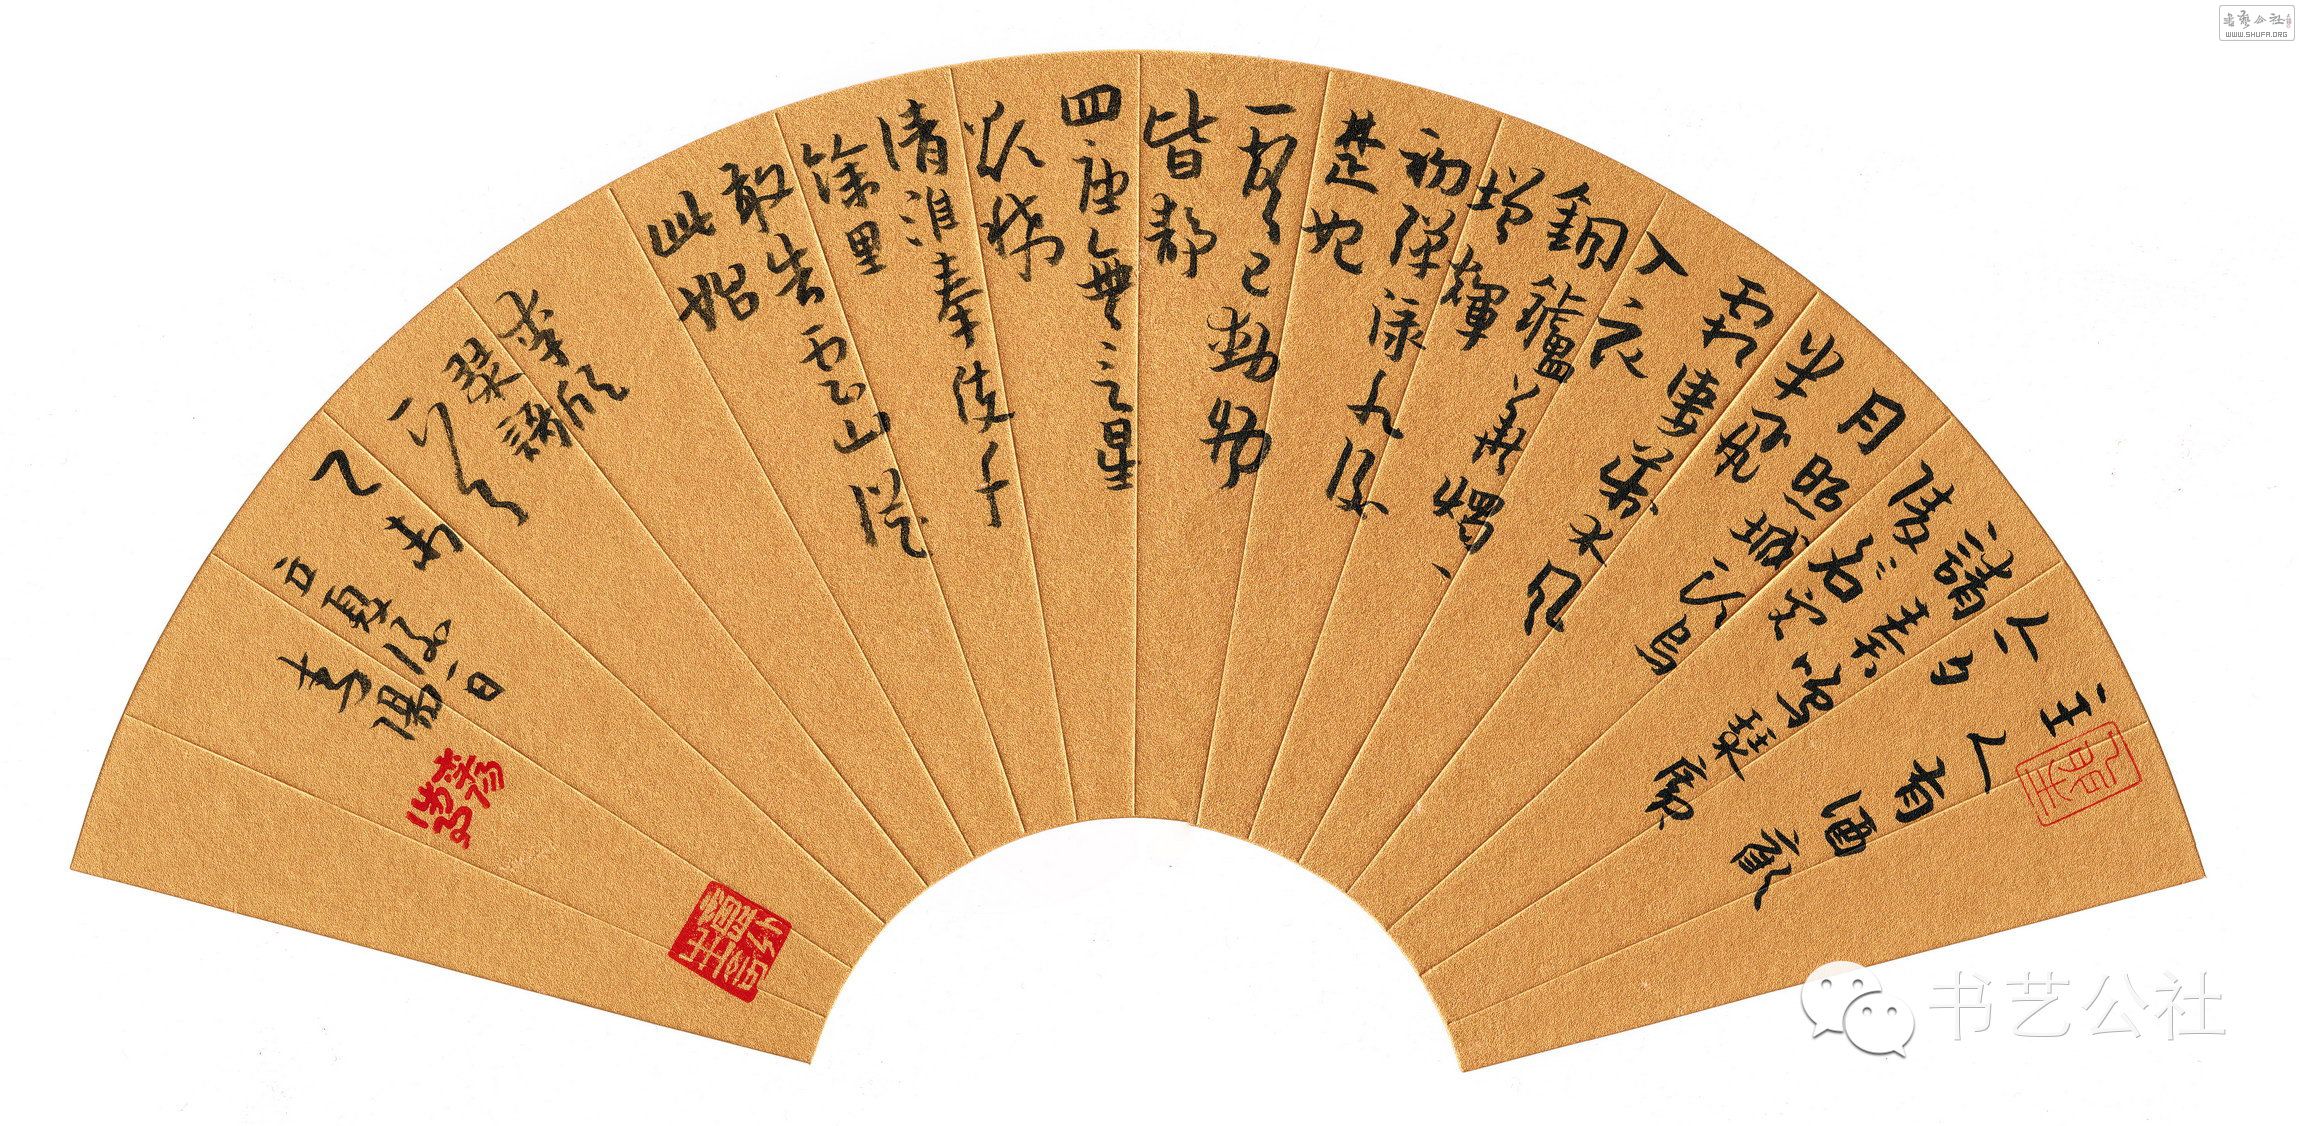 主人有酒歡
今夕
請奏鳴琴廣
陵客
月照城頭烏
半飛
霜淒萬木風
入衣
銅爐華燭、
增輝
初彈淥水後
楚妃
一聲已動物
皆靜
四座無言星
欲稀
清淮奉使千
餘里
敢告雲山從
此始
李頎
琴歌
一首
乙未
立夏後一日
书艺公社
WWW.SHUFA.ORG